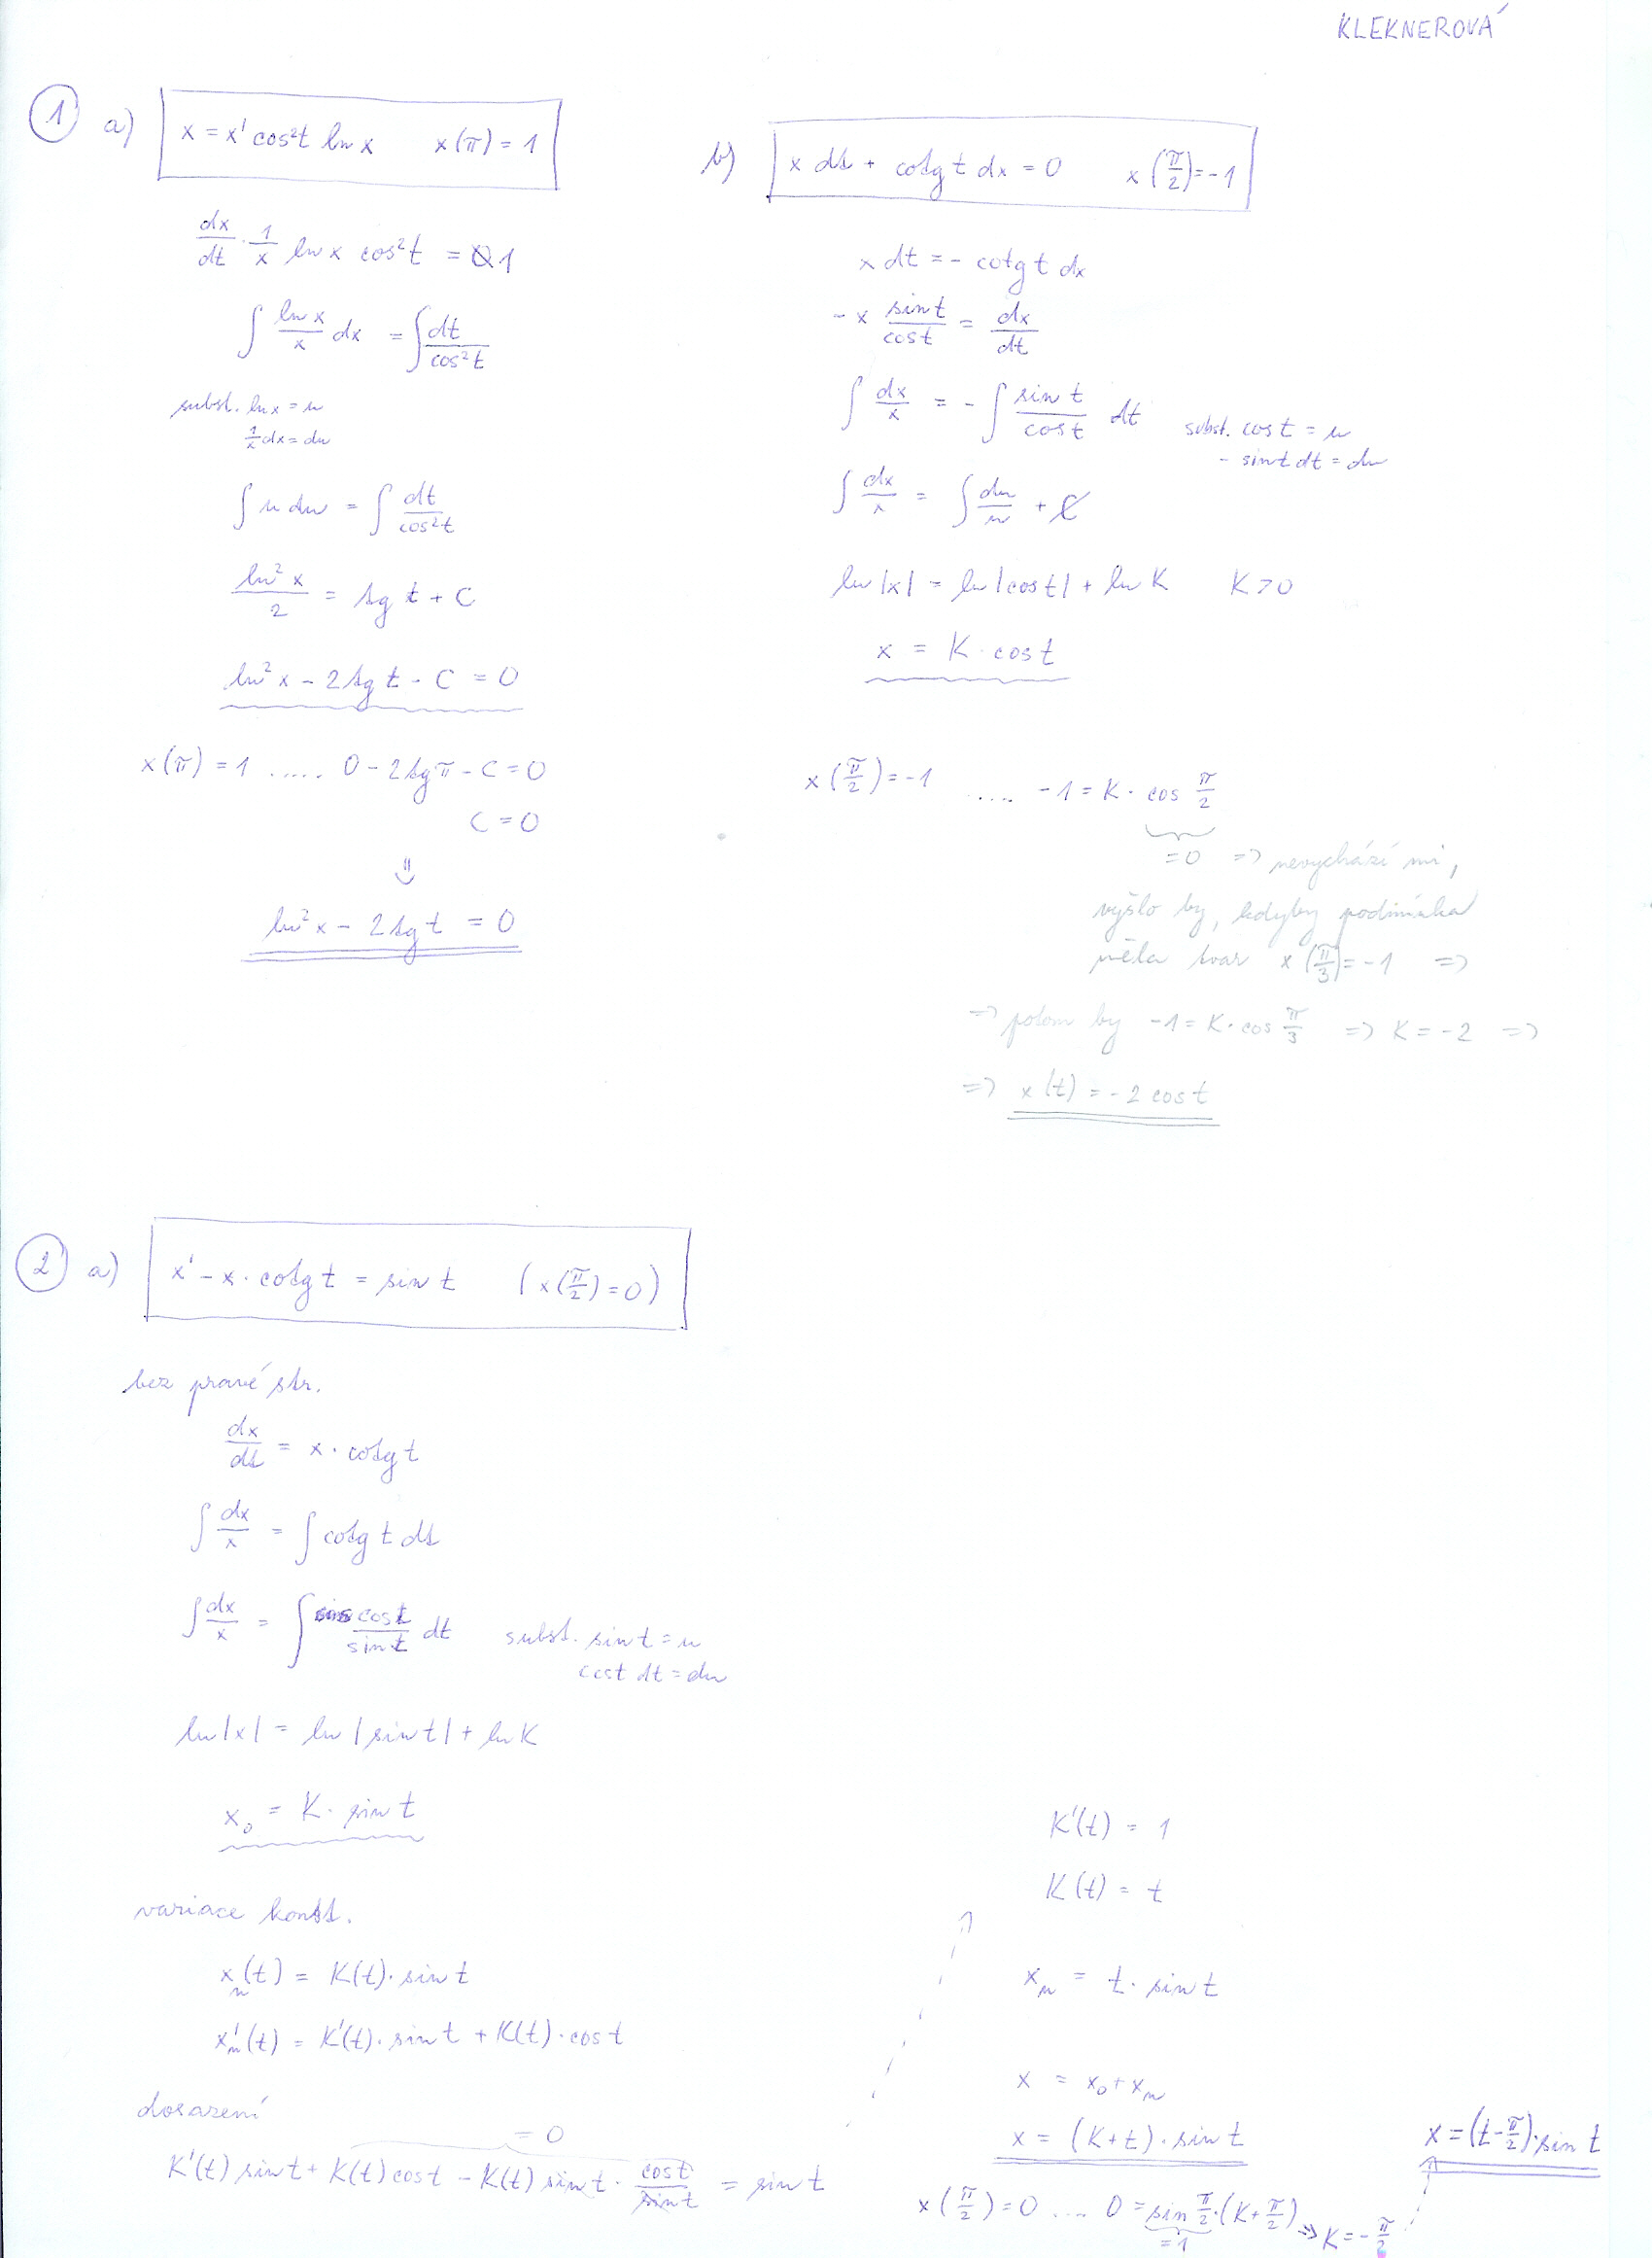 KLEKNEROVÁ
1 a) x = x' cos²t ln x x(π) = 1
dx/dt · 1/x ln x cos²t = 1
∫ ln x/x dx = ∫ dt/cos²t
subst. ln x = u
1/x dx = du
∫ u du = ∫ dt/cos²t
ln²x/2 = tg t + C
ln²x - 2 tg t - C = 0
x(π) = 1 ..... 0 - 2 tg π - C = 0
C = 0
⇓
ln²x - 2 tg t = 0
b) x dt + cotg t dx = 0 x(π/2) = -1
x dt = - cotg t dx
- x sin t/cos t = dx/dt
∫ dx/x = - ∫ sin t/cos t dt subst. cos t = u
- sin t dt = du
∫ dx/x = ∫ du/u + C
ln |x| = ln |cos t| + ln K K > 0
x = K · cos t
x(π/2) = -1 ..... -1 = K · cos π/2
= 0 => nevychází mi,
vyšlo by, kdyby podmínka
měla tvar x(π/3) = -1 =>
=> potom by -1 = K · cos π/3 => K = -2 =>
=> x(t) = -2 cos t
2 a) x' - x · cotg t = sin t (x(π/2) = 0)
bez pravé str.
dx/dt = x · cotg t
∫ dx/x = ∫ cotg t dt
∫ dx/x = ∫ cos t/sin t dt subst. sin t = u
cos t dt = du
ln |x| = ln |sin t| + ln K
x₀ = K · sin t
variace konst.
xₙ(t) = K(t) · sin t
xₙ'(t) = K'(t) · sin t + K(t) · cos t
dosazení
= 0
K'(t) sin t + K(t) cos t - K(t) sin t · cos t/sin t = sin t
K'(t) = 1
K(t) = t
xₙ = t · sin t
x = x₀ + xₙ
x = (K + t) · sin t
x(π/2) = 0 .... 0 = sin π/2 · (K + π/2) => K = - π/2
= 1
x = (t - π/2) · sin t